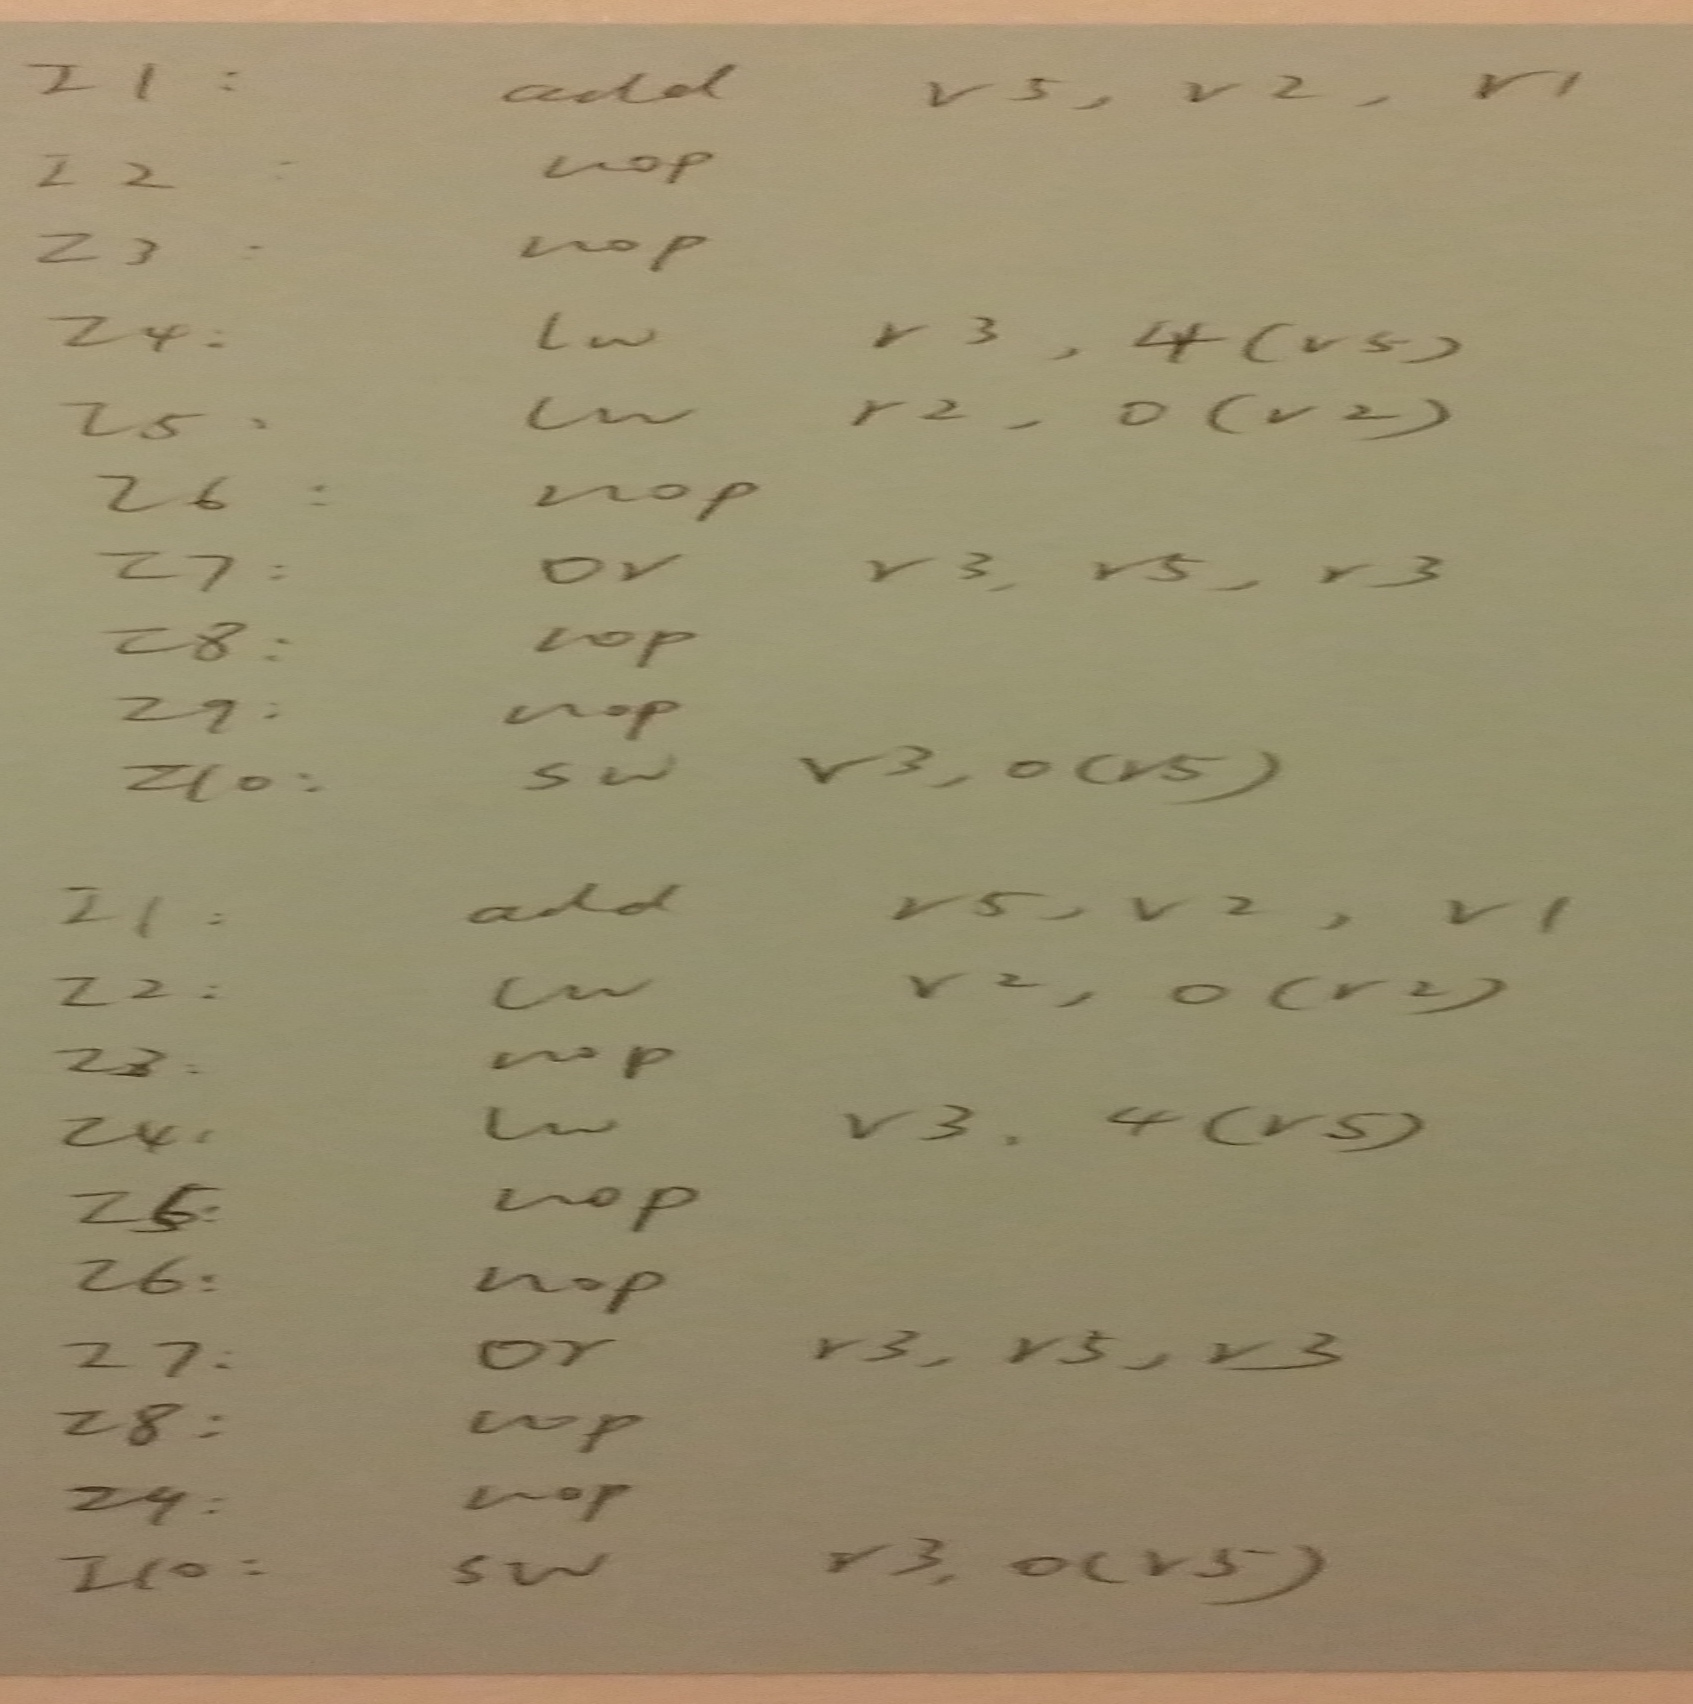 I1: add r5, r2, r1
I2: nop
I3: nop
I4: lw r3, 4(r5)
I5: lw r2, 0(r2)
I6: nop
I7: or r3, r5, r3
I8: nop
I9: nop
I10: sw r3, 0(r5)
I1: add r5, r2, r1
I2: lw r2, 0(r2)
I3: nop
I4: lw r3, 4(r5)
I5: nop
I6: nop
I7: or r3, r5, r3
I8: nop
I9: nop
I10: sw r3, 0(r5)